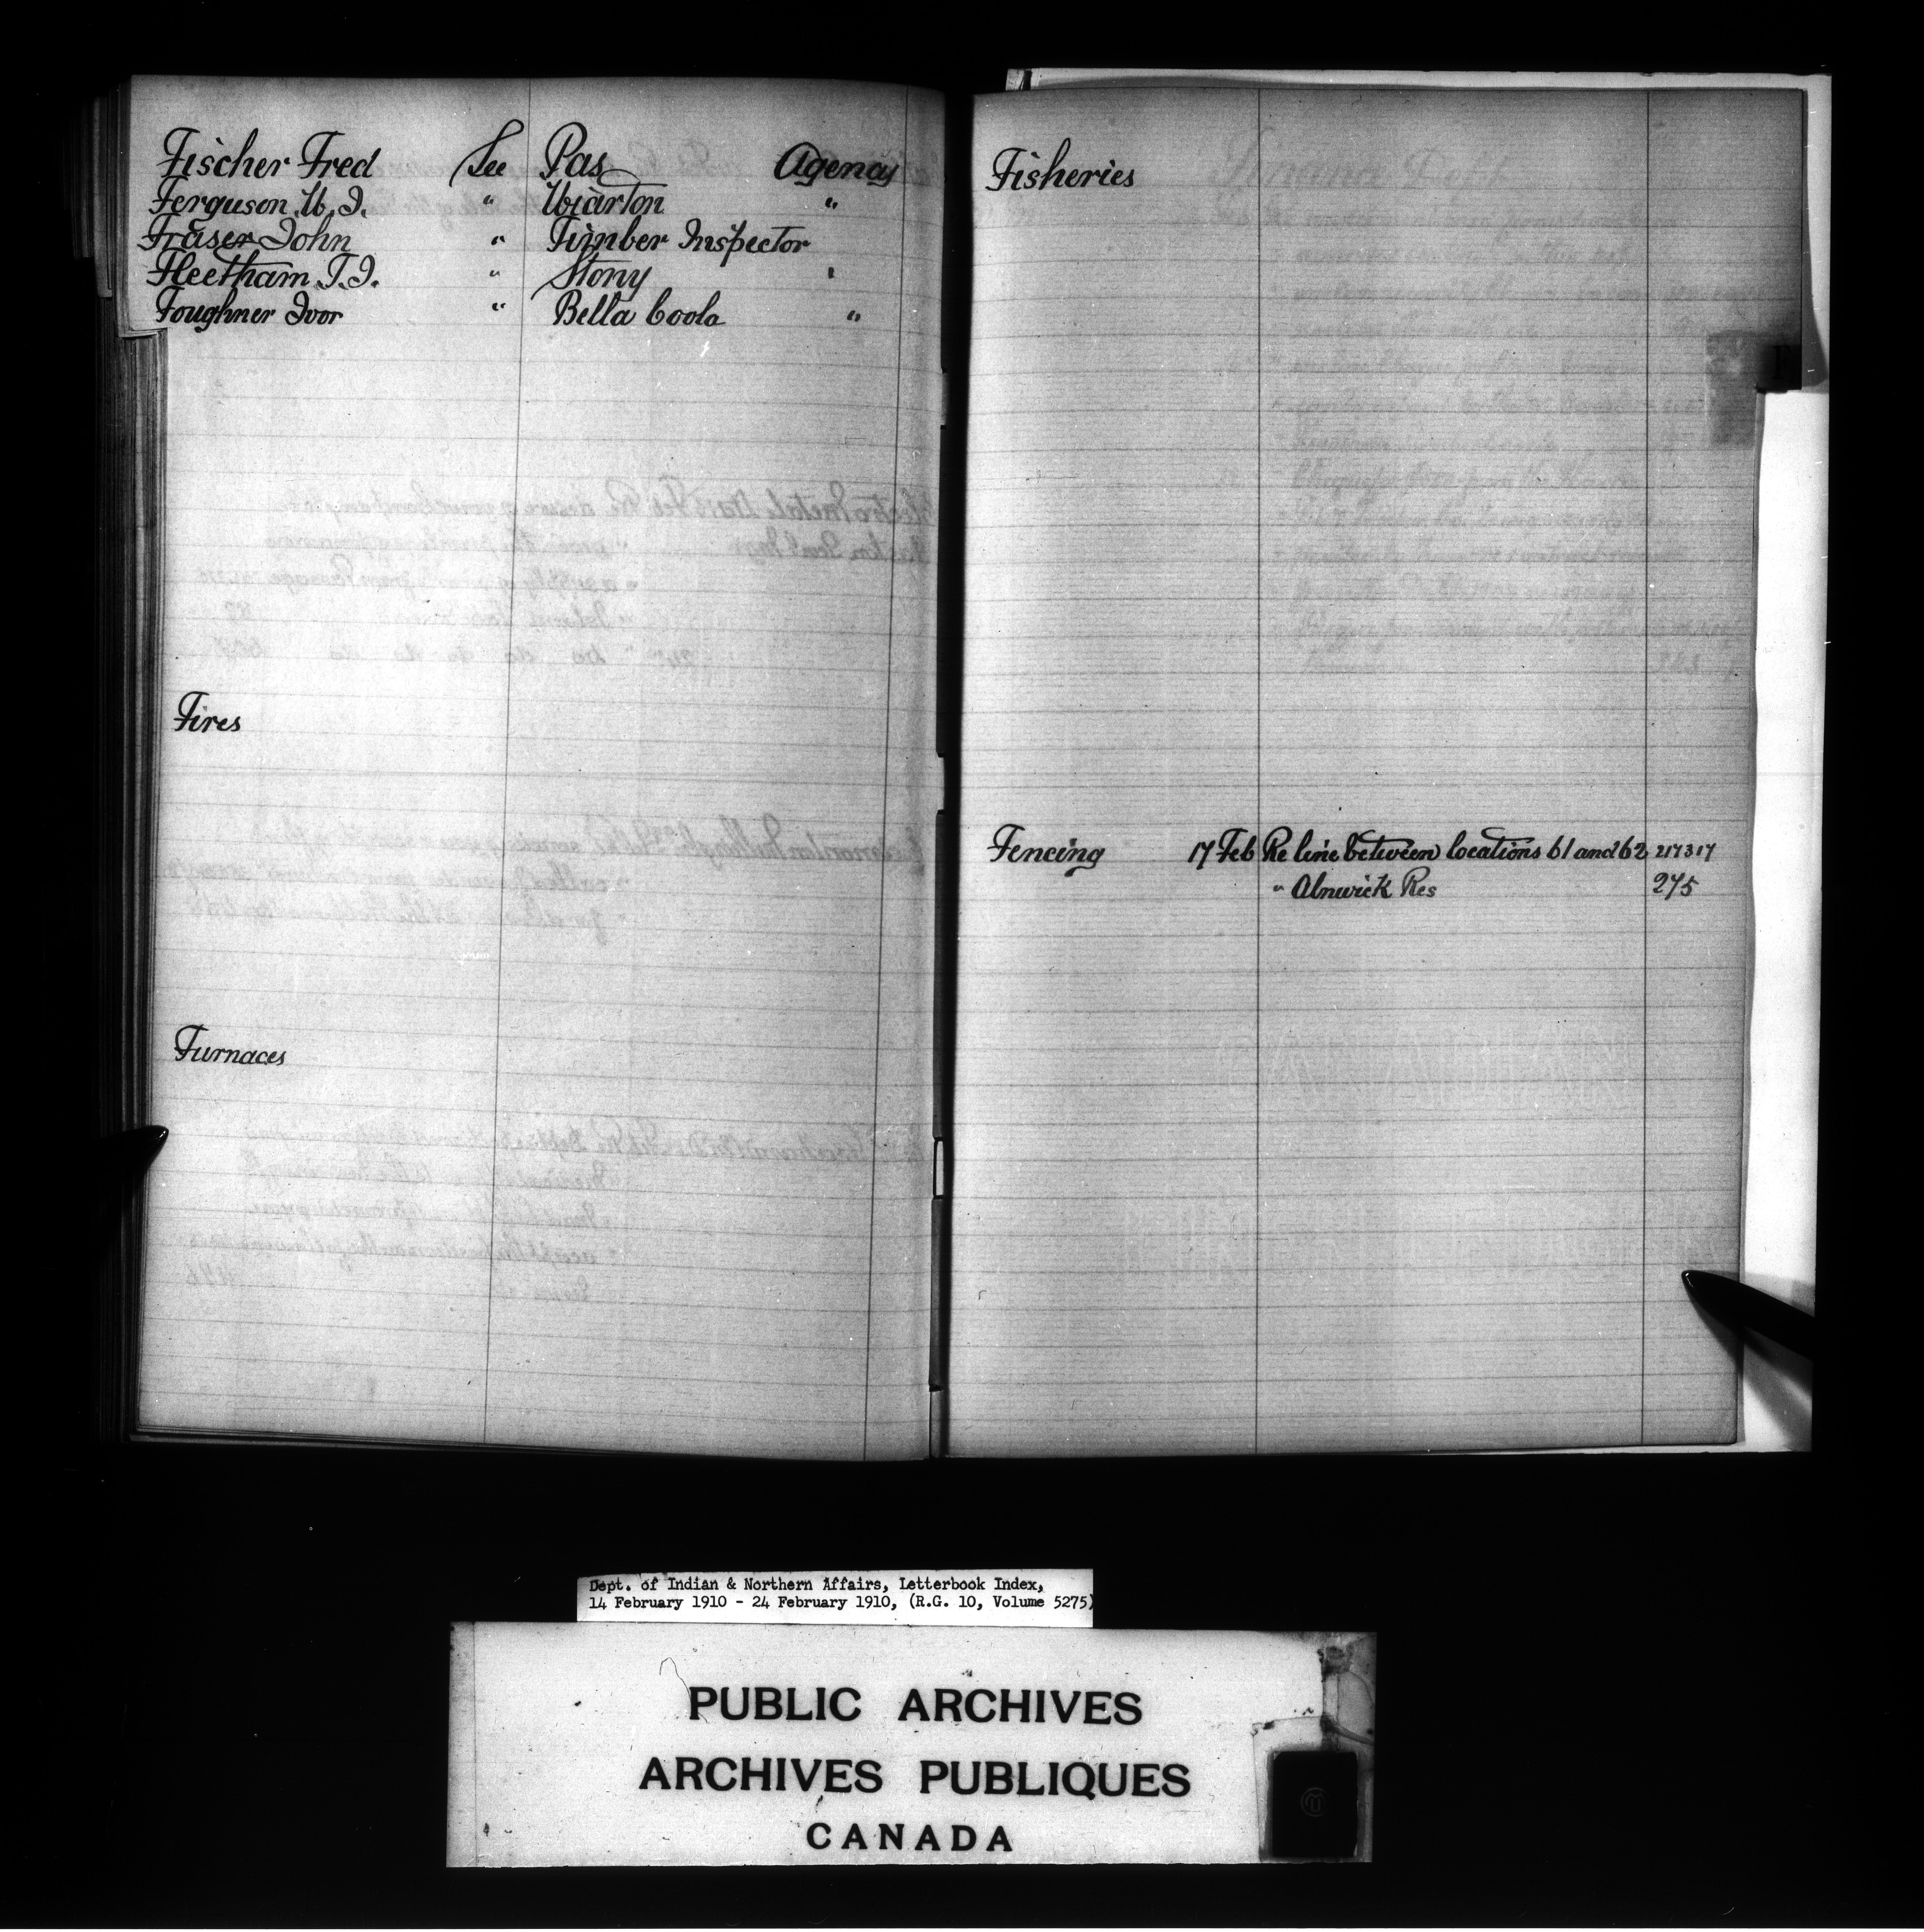 Fischer Fred See Pas Agency
Ferguson W. J. " Wiarton "
Fraser John " Timber Inspector
Fleetham T. J. " Stony "
Foughner Ivor " Bella Coola "
Fires
Furnaces
Fisheries
Fencing 17 Feb Re line between locations 61 and 62 217317
" Alnwick Res 275
Dept. of Indian & Northern Affairs, Letterbook Index,
14 February 1910 - 24 February 1910, (R.G. 10, Volume 5275)
PUBLIC ARCHIVES
ARCHIVES PUBLIQUES
CANADA